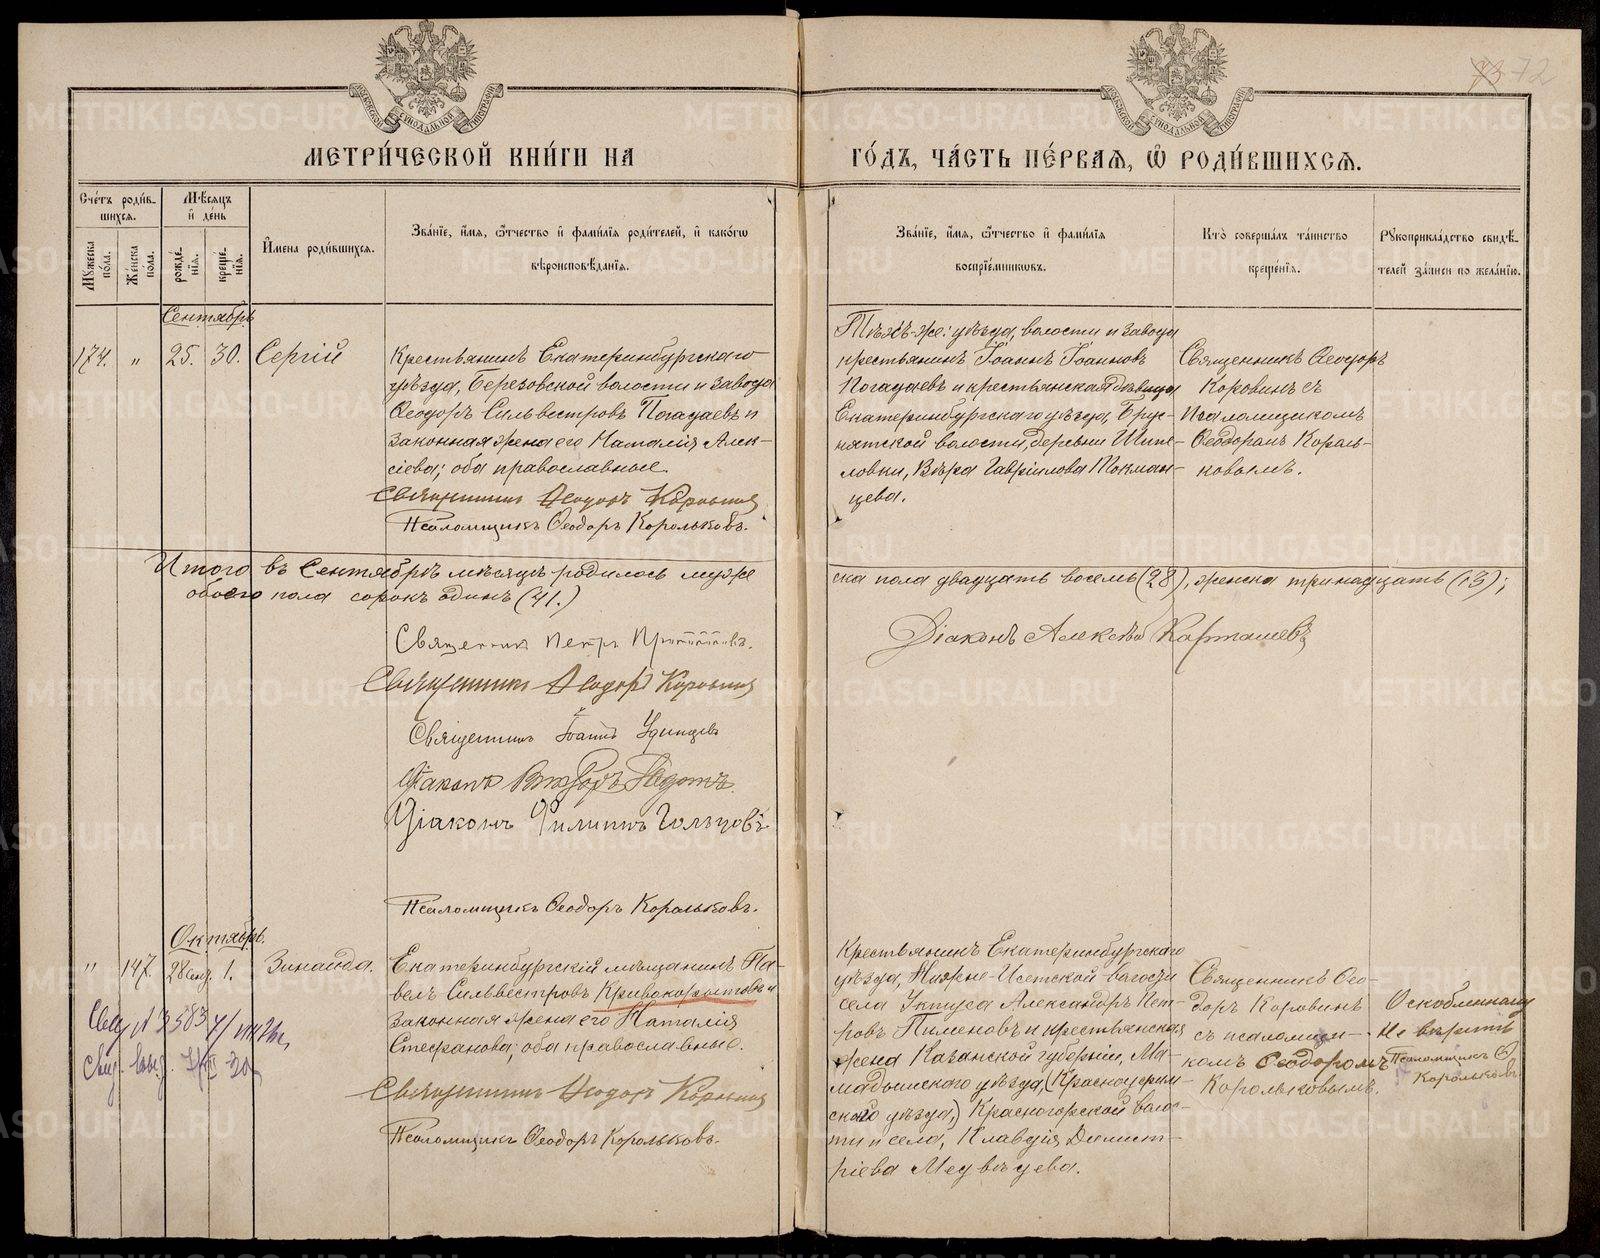 73 72
МЕТРИ́ЧЕСКОЙ КНИ́ГИ НА
ГО́ДЪ, ЧА́СТЬ ПЕ́РВАЯ, Ѡ РОДИ́ВШИХСЯ.
Сче́тъ роди́в-
шихся.
Му́жеска по́ла.
Же́нска по́ла.
Мѣсяцъ
и де́нь
рожде́-
нія.
креще́-
нія.
И́мена роди́вшихся.
Зва́ніе, и́мя, ѻ́тчество и фами́лія роди́телей, и како́гѡ
вѣроисповѣ́данія.
Зва́ніе, и́мя, ѻ́тчество и фами́лія
воспріе́мниковъ.
Кто̀ соверша́лъ та́инство
креще́нія.
Рукоприкла́дство свидѣ́-
телей за́писи по жела́нію.
Сентябрь
174. " 25. 30. Сергій
Крестьянинъ Екатеринбургскаго
уѣзда, Березовской волости и завода
Ѳеодоръ Сильвестровъ Погадаевъ и
законная жена его Наталія Алек-
сіева; оба православные.
Священникъ Ѳеодоръ Коровинъ
Псаломщикъ Ѳеодоръ Корольковъ.
Тѣхъ-же: уѣзда, волости и завода
крестьянинъ Іоаннъ Іоанновъ
Погадаевъ и крестьянская дѣвица
Екатеринбургскаго уѣзда, Брус-
нятской волости, деревни Шипе-
ловки, Вѣра Гавріилова Токман-
цева.
Священникъ Ѳеодоръ
Коровинъ съ
Псаломщикомъ
Ѳеодоромъ Король-
ковымъ.
Итого въ Сентябрѣ мѣсяцѣ родилось муже
ска пола двадцать восемь (28), женска тринадцать (13);
обоего пола сорокъ одинъ (41.)
Священникъ Петръ
Діаконъ Алексѣй Карташевъ
Священникъ Ѳеодоръ Коровинъ
Священникъ Іоаннъ Удинцевъ
Діаконъ Викторъ Ѳедотъ
Діаконъ Филиппъ Гольцовъ
Псаломщикъ Ѳеодоръ Корольковъ.
Октябрь.
" 147. 28 сент. 1. Зинаида.
Екатеринбургскій мѣщанинъ Па-
велъ Сильвестровъ Кривокорытовъ и
законная жена его Наталія
Стефанова; оба православные.
Священникъ Ѳеодоръ Коровинъ
Псаломщикъ Ѳеодоръ Корольковъ.
Свид. № 2583
Свид. выд.
Крестьянинъ Екатеринбургскаго
уѣзда, Нижне-Исетской волости
села Уктуса Александръ Пет-
ровъ Пименовъ и крестьянская
жена Казанской губерніи, Ма-
мадышскаго уѣзда, (Красноуфим-
скаго уѣзда,) Красногорской волос-
ти и села, Клавдія Димит-
ріева Медвѣдева.
Священникъ Ѳео-
доръ Коровинъ
съ псаломщи-
комъ Ѳеодоромъ
Корольковымъ.
Оскобленному
не вѣрить
Псаломщикъ Ѳ.
Корольковъ
METRIKI.GASO-URAL.RU